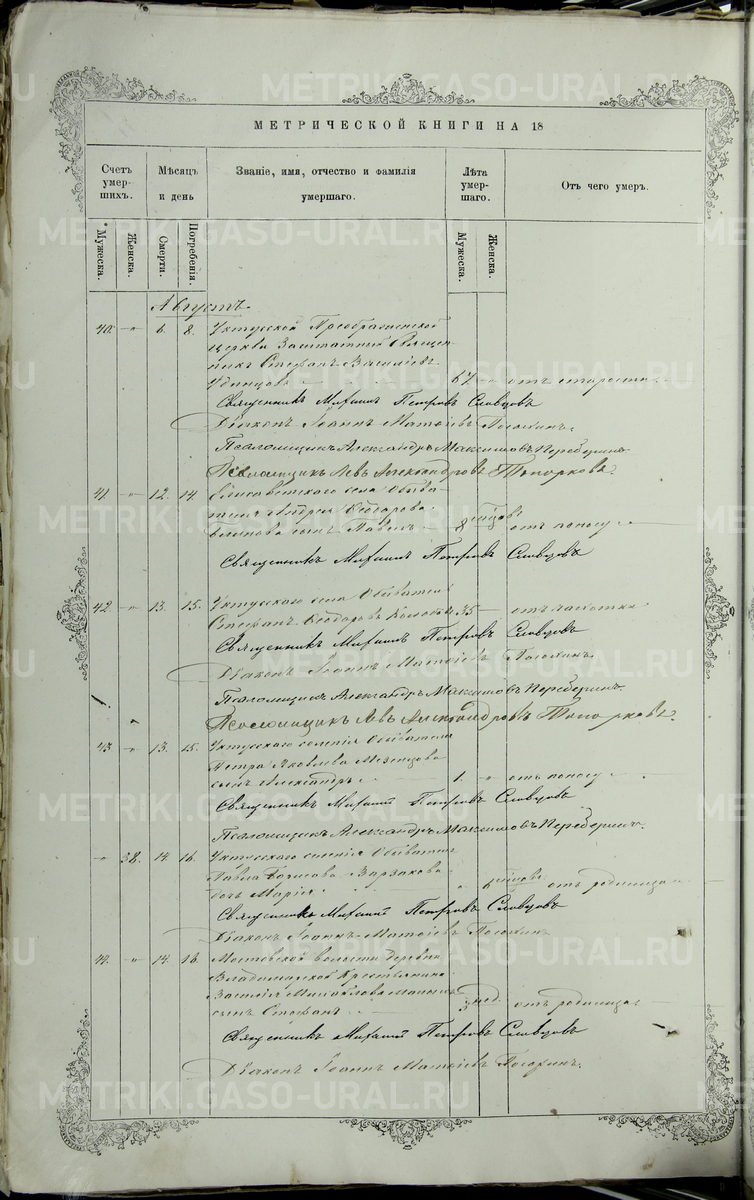 МЕТРИЧЕСКОЙ КНИГИ НА 18
Счетъ умер- шихъ.
Мѣсяцъ и день
Званіе, имя, отчество и фамилія умершаго.
Лѣта умер- шаго.
Отъ чего умеръ.
Мужеска.
Женска.
Смерти.
Погребенія.
Мужеска.
Женска.
Августъ
40. 6. 8. Уктусской Преображенской
церкви Заштатный Священ-
никъ Стефанъ Васильевъ
Удинцовъ 67 отъ старости
Священникъ Михаилъ Петровъ Словцовъ
Діаконъ Іоаннъ Матѳіевъ
Псаломщикъ Александръ Максимовъ Переберинъ
Псаломщикъ Левъ Александровъ Топорковъ.
41. 12. 14. Елисаветскаго села Обыва-
сынъ Павелъ отъ поносу
Священникъ Михаилъ Петровъ Словцовъ
42. 13. 15. Уктусскаго села Обыватель
Стефанъ Ѳеодоровъ 35 отъ чахотки
Священникъ Михаилъ Петровъ Словцовъ
Діаконъ Іоаннъ Матѳіевъ
Псаломщикъ Александръ Максимовъ Переберинъ.
Псаломщикъ Левъ Александровъ Топорковъ.
43 13. 15. Уктусскаго селенія Обывателя
Петра Яковлева Мезенцова
сынъ Александръ 1. отъ поносу
Священникъ Михаилъ Петровъ Словцовъ
Псаломщикъ Александръ Максимовъ Переберинъ.
38. 14. 16. Уктусскаго селенія Обывателя
Павла Варзакова
дочь Марія 6 отъ родимца
Священникъ Михаилъ Петровъ Словцовъ
Діаконъ Іоаннъ Матѳіевъ
44. 14. 16. Мостовской волости деревни
Крестьянина
Василія Михайлова
сынъ Стефанъ 3 нед. отъ родимца
Священникъ Михаилъ Петровъ Словцовъ
Діаконъ Іоаннъ Матѳіевъ
METRIKI.GASO-URAL.RU